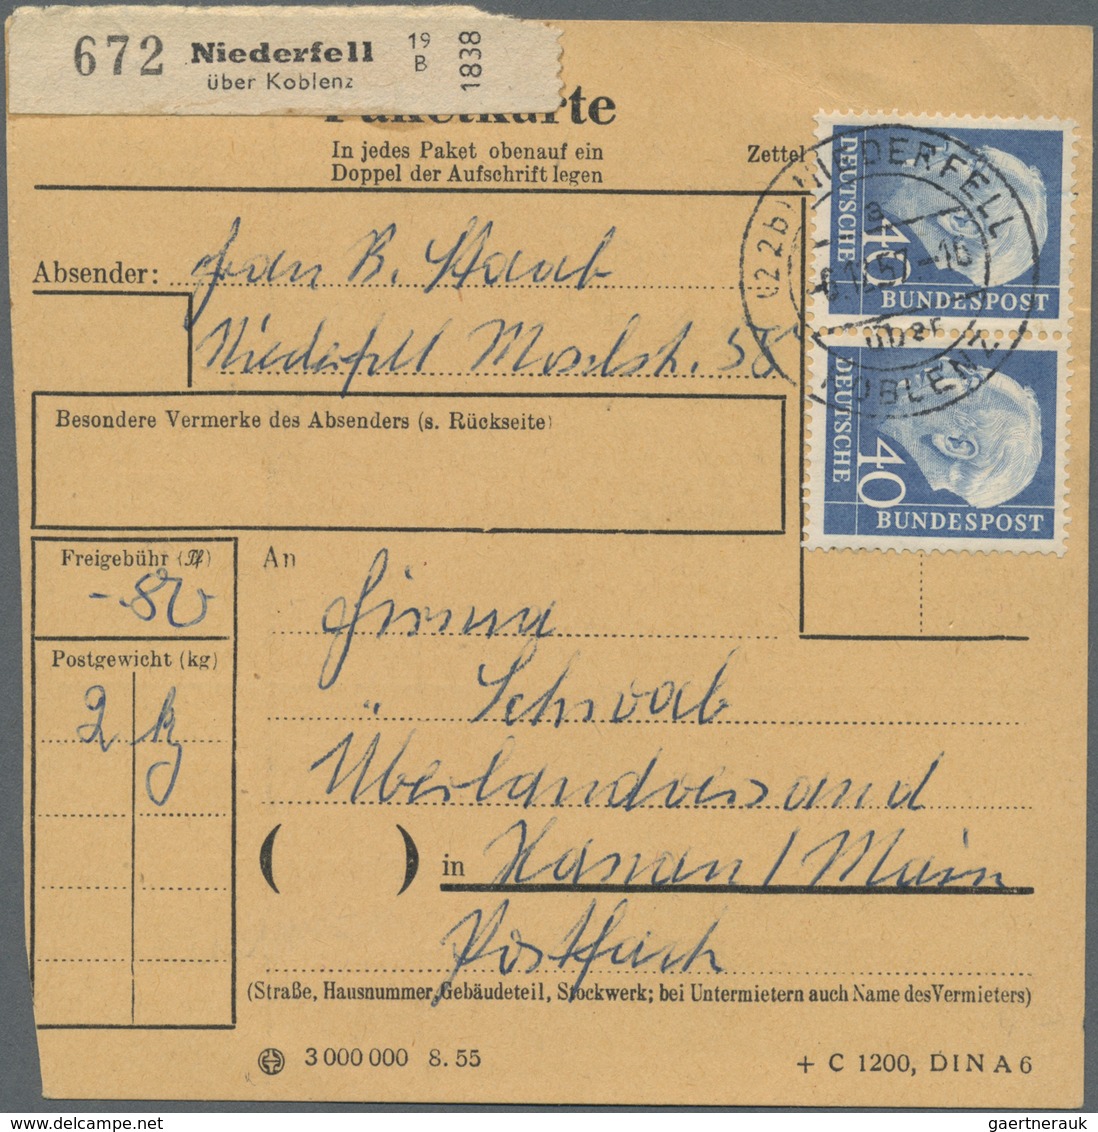 672 Niederfell 19 B 1838
über Koblenz
Paketkarte
In jedes Paket obenauf ein
Doppel der Aufschrift legen
Zettel
(22b) NIEDERFELL
a
.57-16
über
KOBLENZ
DEUTSCHE
40
BUNDESPOST
DEUTSCHE
40
BUNDESPOST
Absender: Frau B. Staab
Niederfell Moselstr. 58
Besondere Vermerke des Absenders (s. Rückseite)
Freigebühr (Pf)
-.80
Postgewicht (kg)
2 kg
An
Firma
Schwab
Überlandversand
( ) in Hanau / Main
Postfach
(Straße, Hausnummer, Gebäudeteil, Stockwerk; bei Untermietern auch Name des Vermieters)
3 000 000 8. 55
+ C 1200, DIN A 6
gaertnerauk